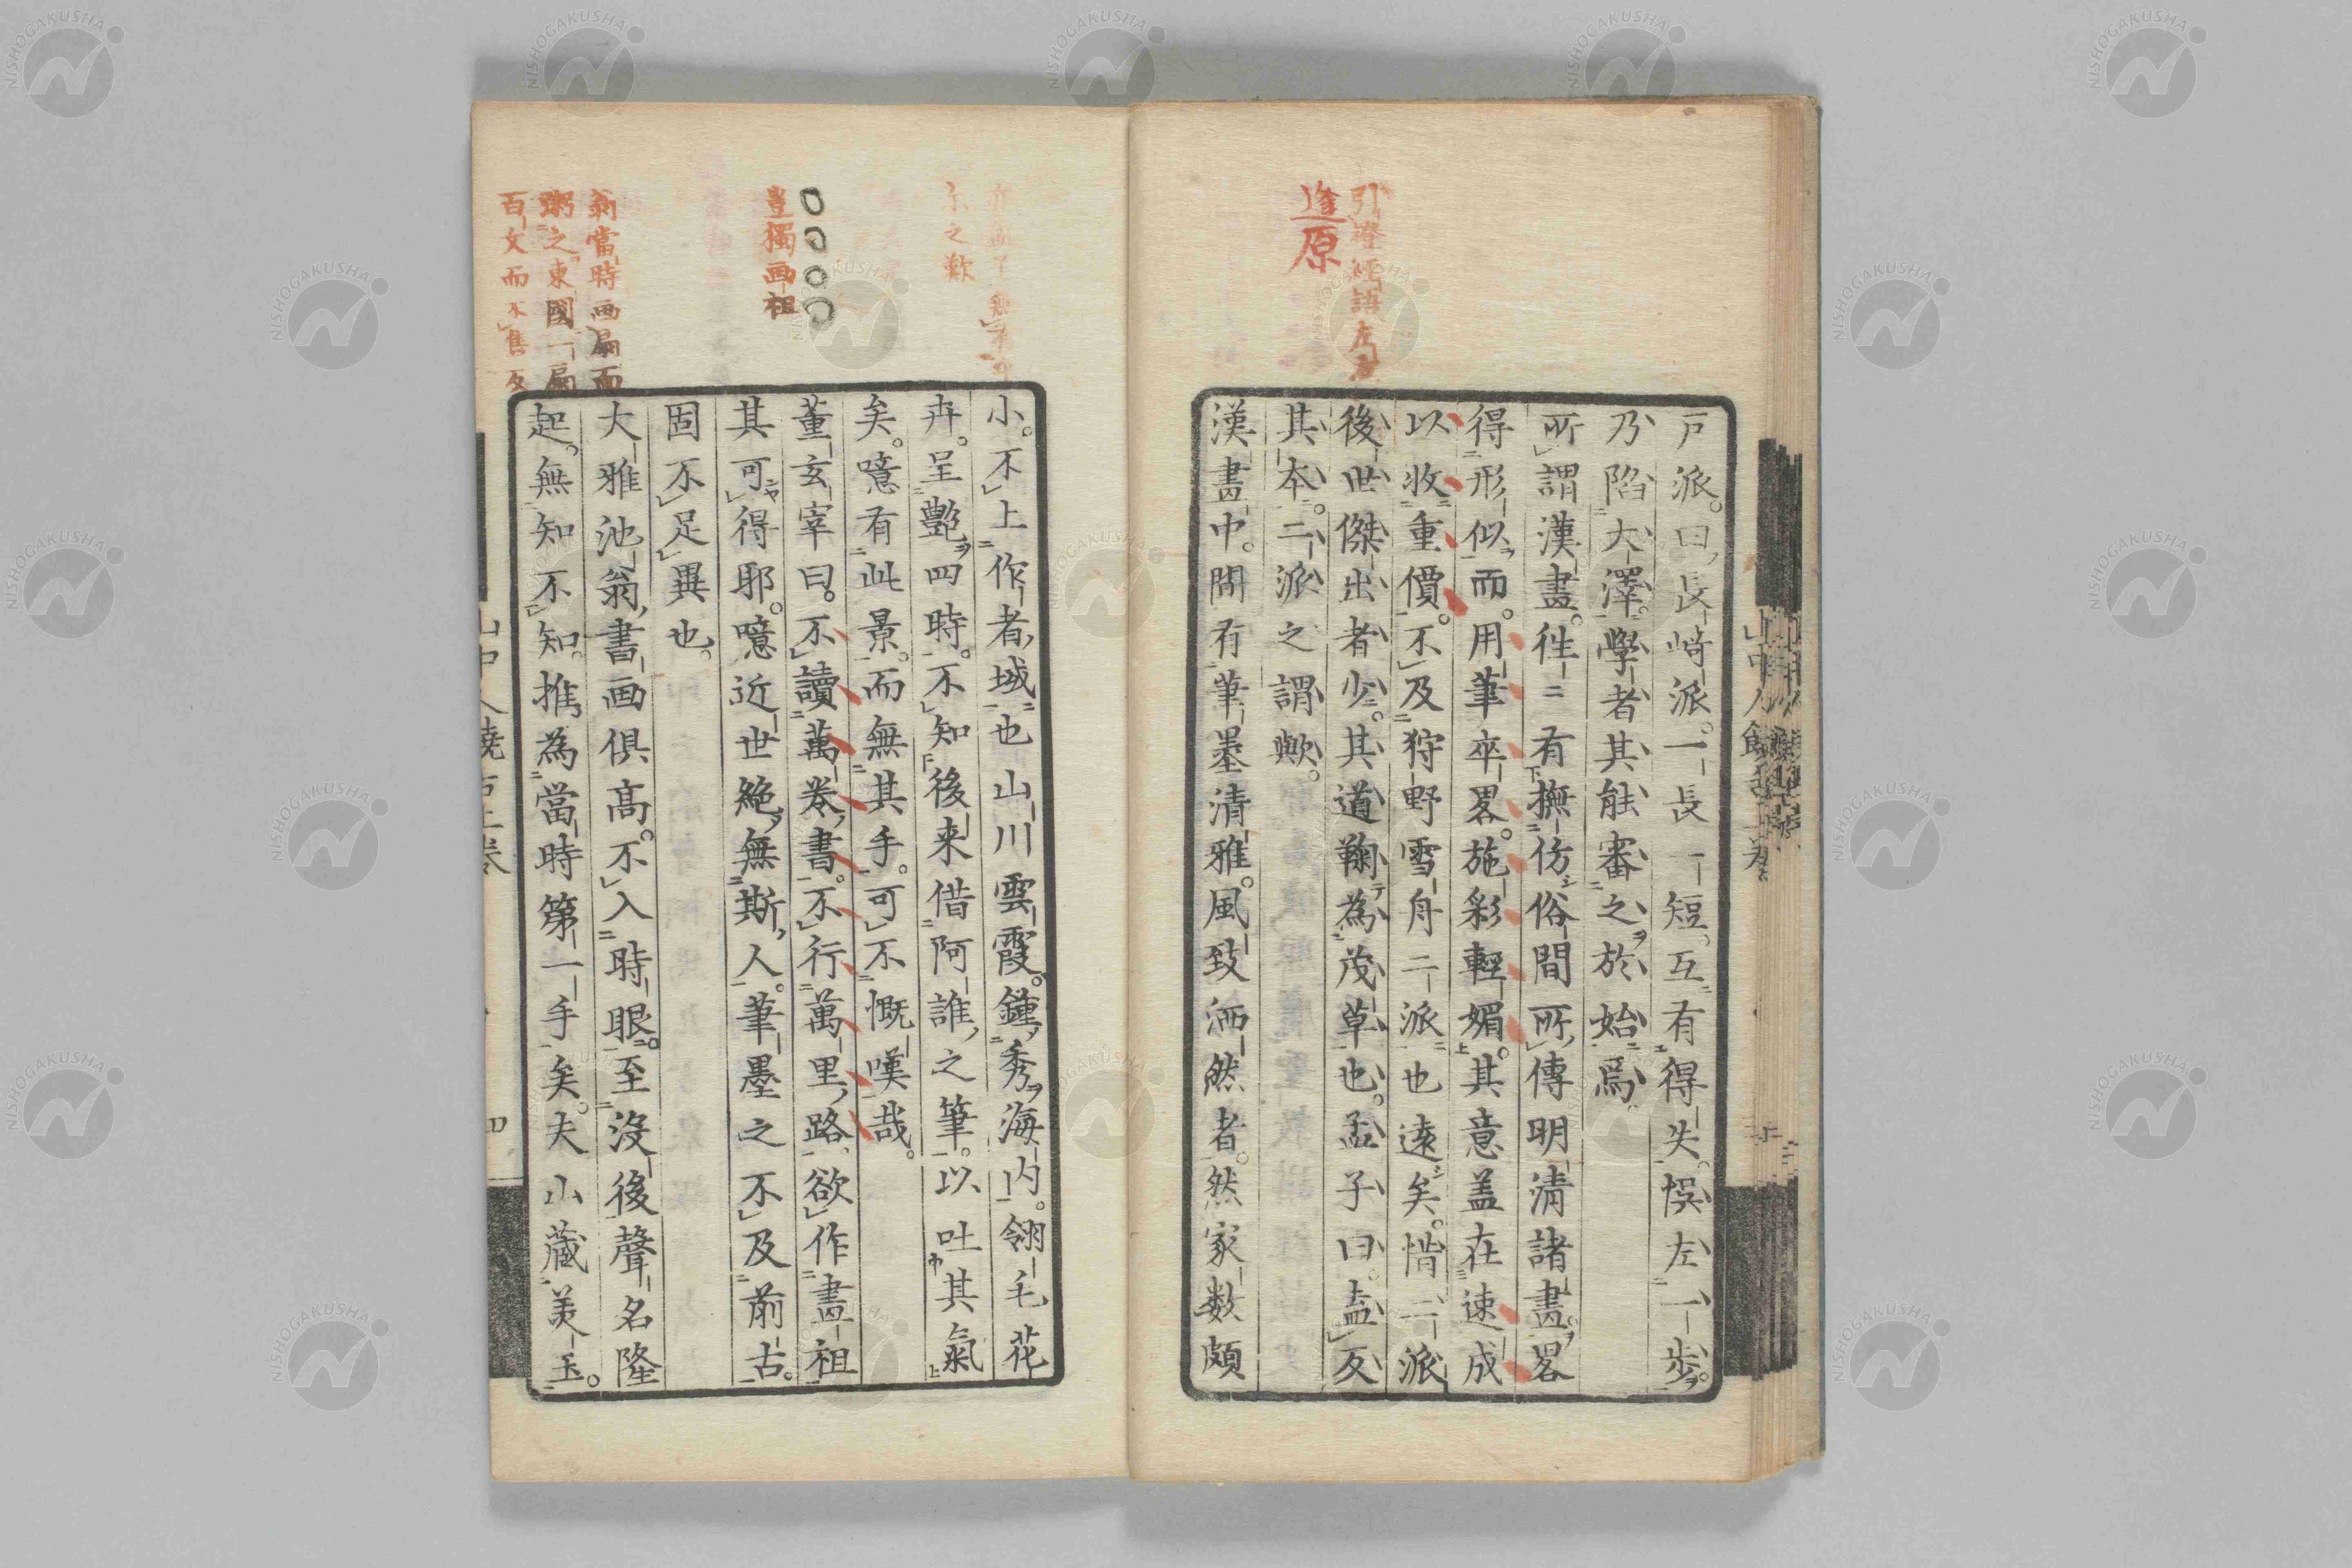 引證經語左
逢原
戸派。曰長﨑派。一長一短。互有得失。悞左一步。
乃陷大澤。學者其能審之於始焉。
所謂漢畫。徃〻有撫仿俗間所傳明淸諸畫。畧
得形似而。用筆卒畧。施彩輕媚。其意盖在速成
以收重價。不及狩野雪舟二派也遠矣。惜二派
後世傑出者少。其道鞠為茂草也。孟子曰。盍反
其本。二派之謂歟。
漢畫中。間有筆墨清雅。風致洒然者。然家数頗
小。不上作者城也山川雲霞。鍾秀海内。翎毛花
卉。呈艷四時。不知後来借阿誰之筆。以吐其氣
矣。噫有此景。而無其手。可不慨嘆哉。
董玄宰曰。不讀萬卷書。不行萬里路。欲作畫祖
其可得耶。噫近世絶無斯人。筆墨之不及前古。
固不足異也。
大雅池翁書画倶高。不入時眼。至沒後聲名隆
起。無知不知。推為當時第一手矣。夫山藏美玉。
之歎
豈獨画祖
翁當時画扇面
粥之東國一扇
百文而不售反
四